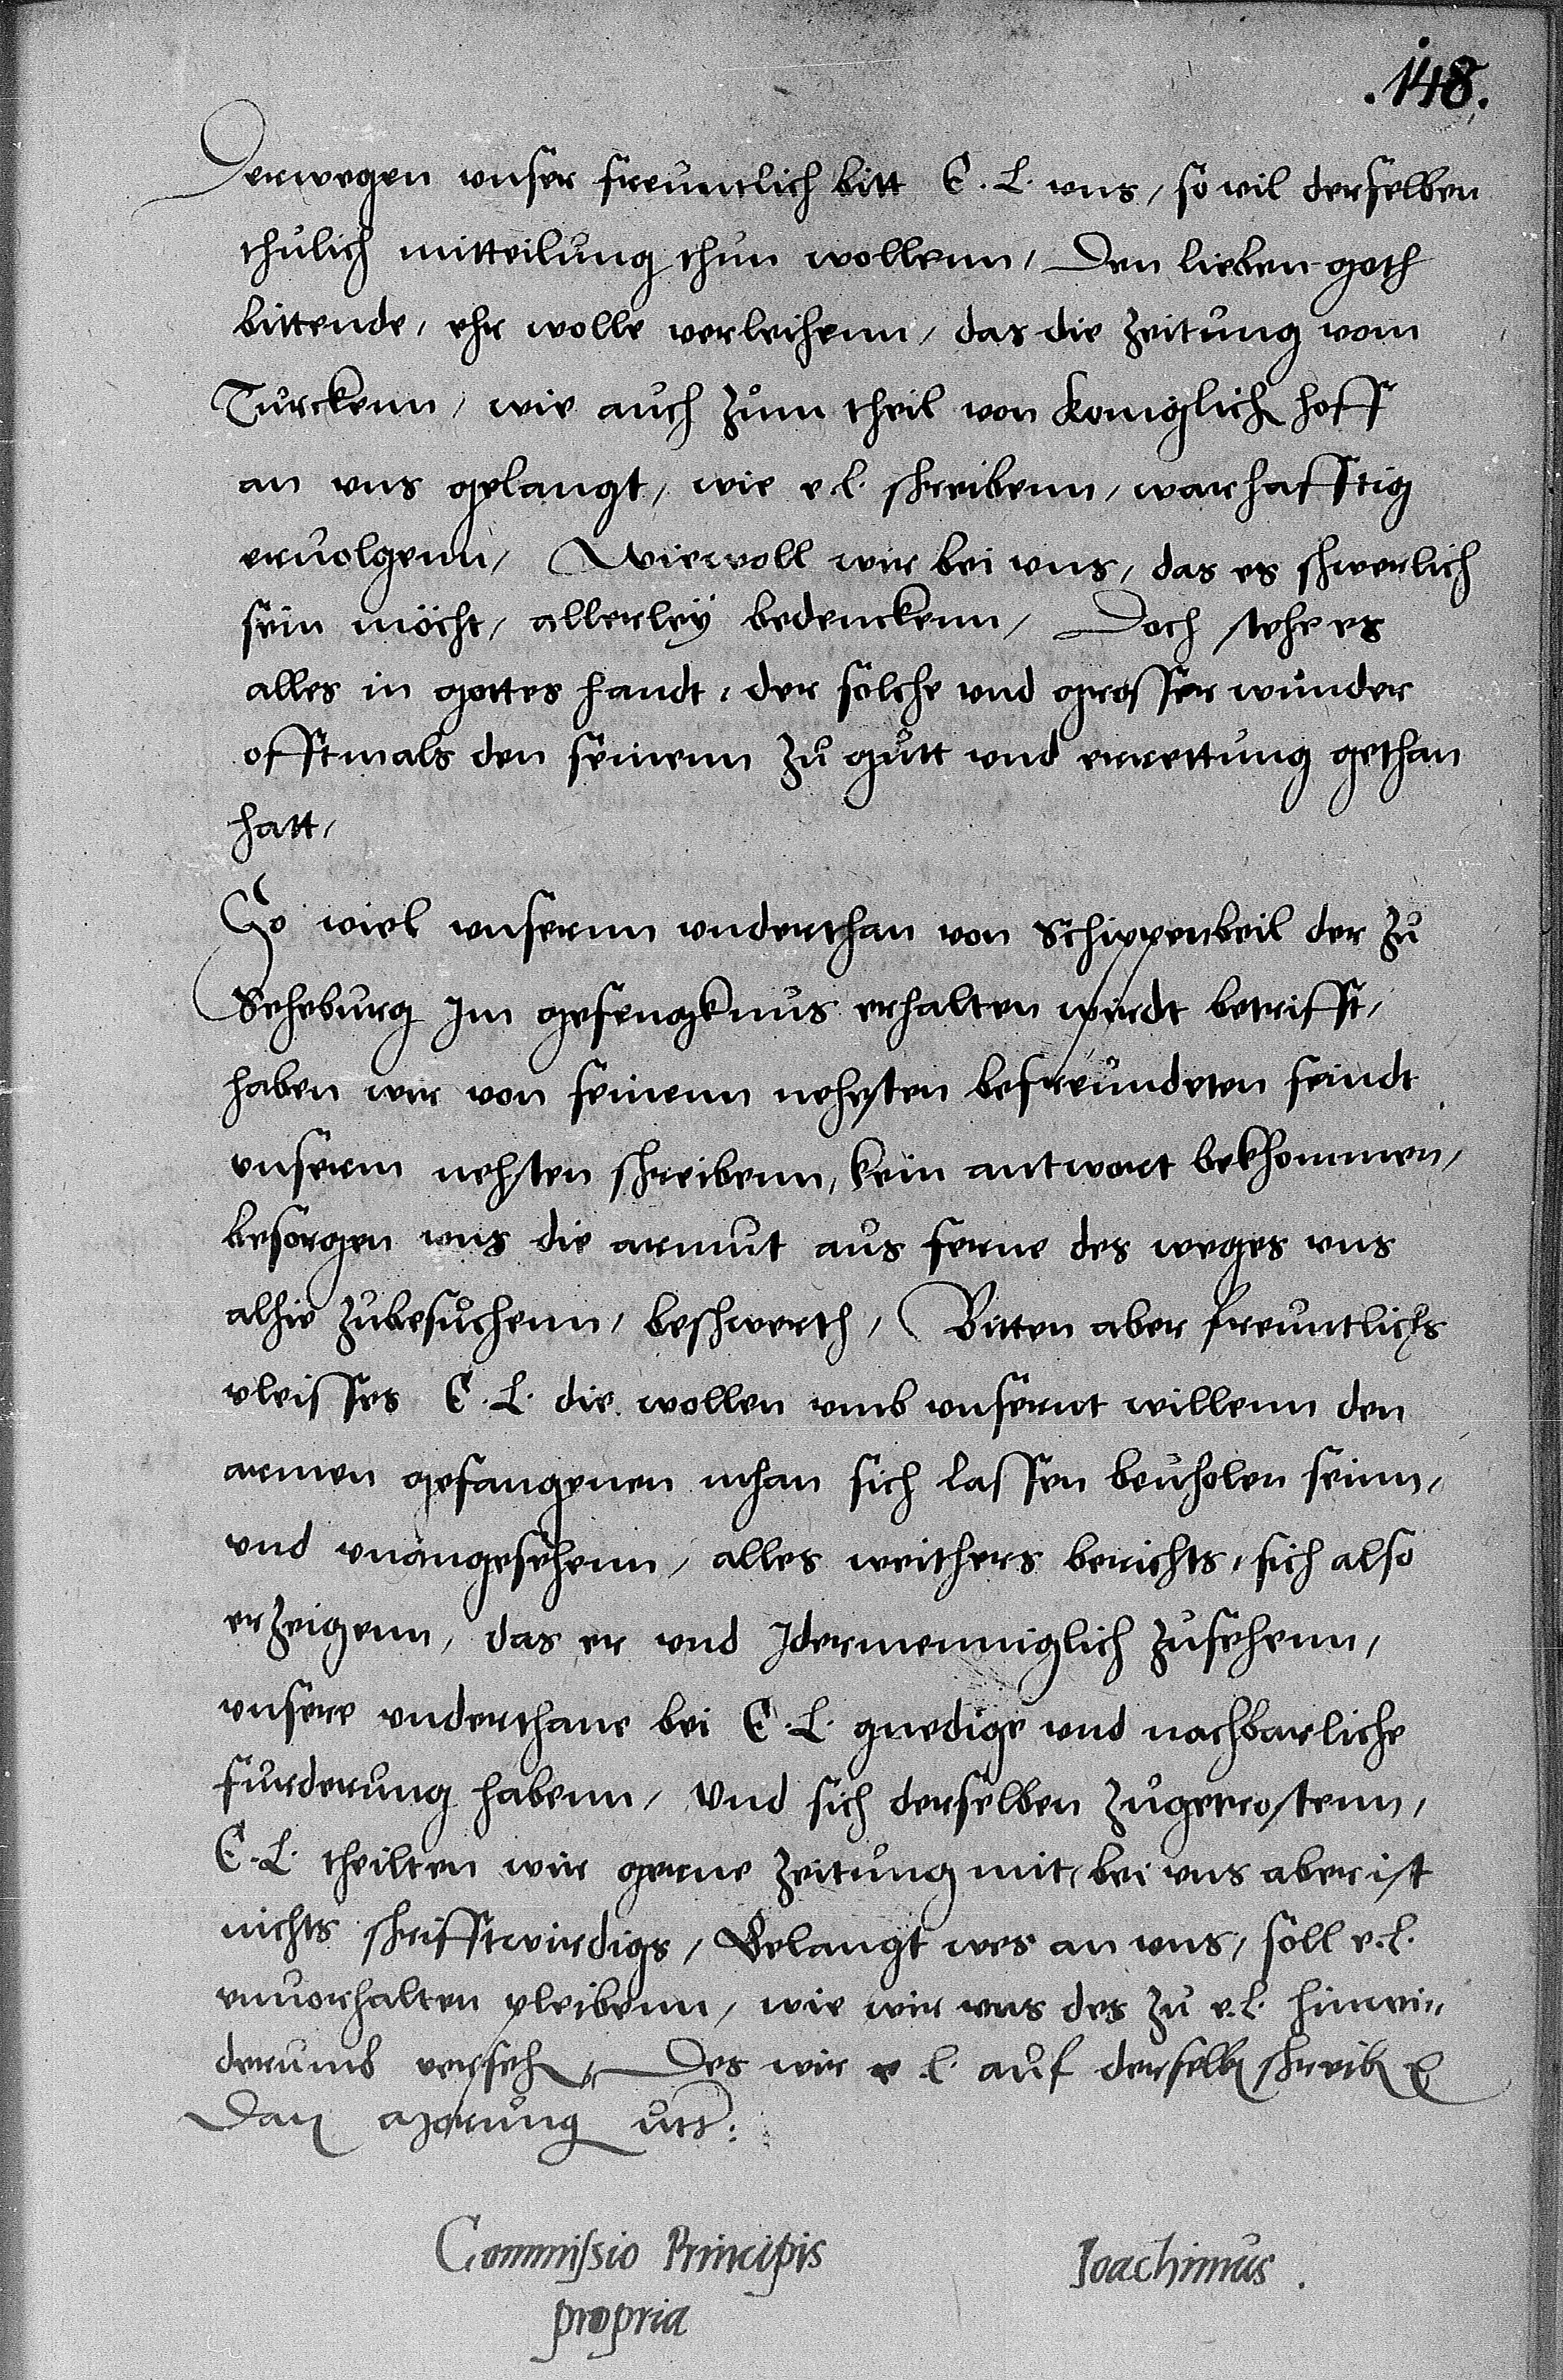 .148.
Derwegen unser freuntlich bitt E. L. uns, so vil derselben
thulich mitteilung thun wollenn, Den lieben goth
bittende, ehr wolle verleihenn, das die Zeitung vom
Turckenn, wie auch zum theil von Koniglich hoff
an uns gelangt, wie e. l. schreibenn, warhafftig
ervolgenn, Wiewoll wir bei uns, das es schwerlich
sein möcht, allerley bedenckenn, Doch stehe es
alles in gottes handt, der solche und grosser wunder
offtmals den seinenn zu gutt und errettung gethan
hatt,
So viel unsernn underthan von Schippenbeil der zu
Seheburg Im gefengknus erhalten wirdt betrifft,
haben wir von seinenn nehesten befreundeten seindt
unserm nehsten schreibenn, kein antwort bekhommen,
besorgen uns die armut aus ferne des weges uns
alhie zubesuchenn, beschwerth, Bitten aber freuntlichs
vleisses E. L. die wollen umb unsernt willenn den
armen gefangenen mhan sich lassen bevholen seinn,
und unangesehenn, alles weithers berichts, sich also
erzeigenn, das er und Idermenniglich zusehenn,
unsere underthane bei E. L. gnedige und nachbarliche
furderung habenn, Und sich derselben zugetrostenn,
E. L. theilten wir gerne Zeitung mit, bei uns aber ist
nichts schrifftwirdigs, Gelangt wes an uns, soll e. l.
unvorhalten pleibenn, wie wir uns des zu e. l. hinwi„
derumb verseh, Des wir e. l. auf derselb schreib
utt:
Commissio Principis
propria
Joachimus.